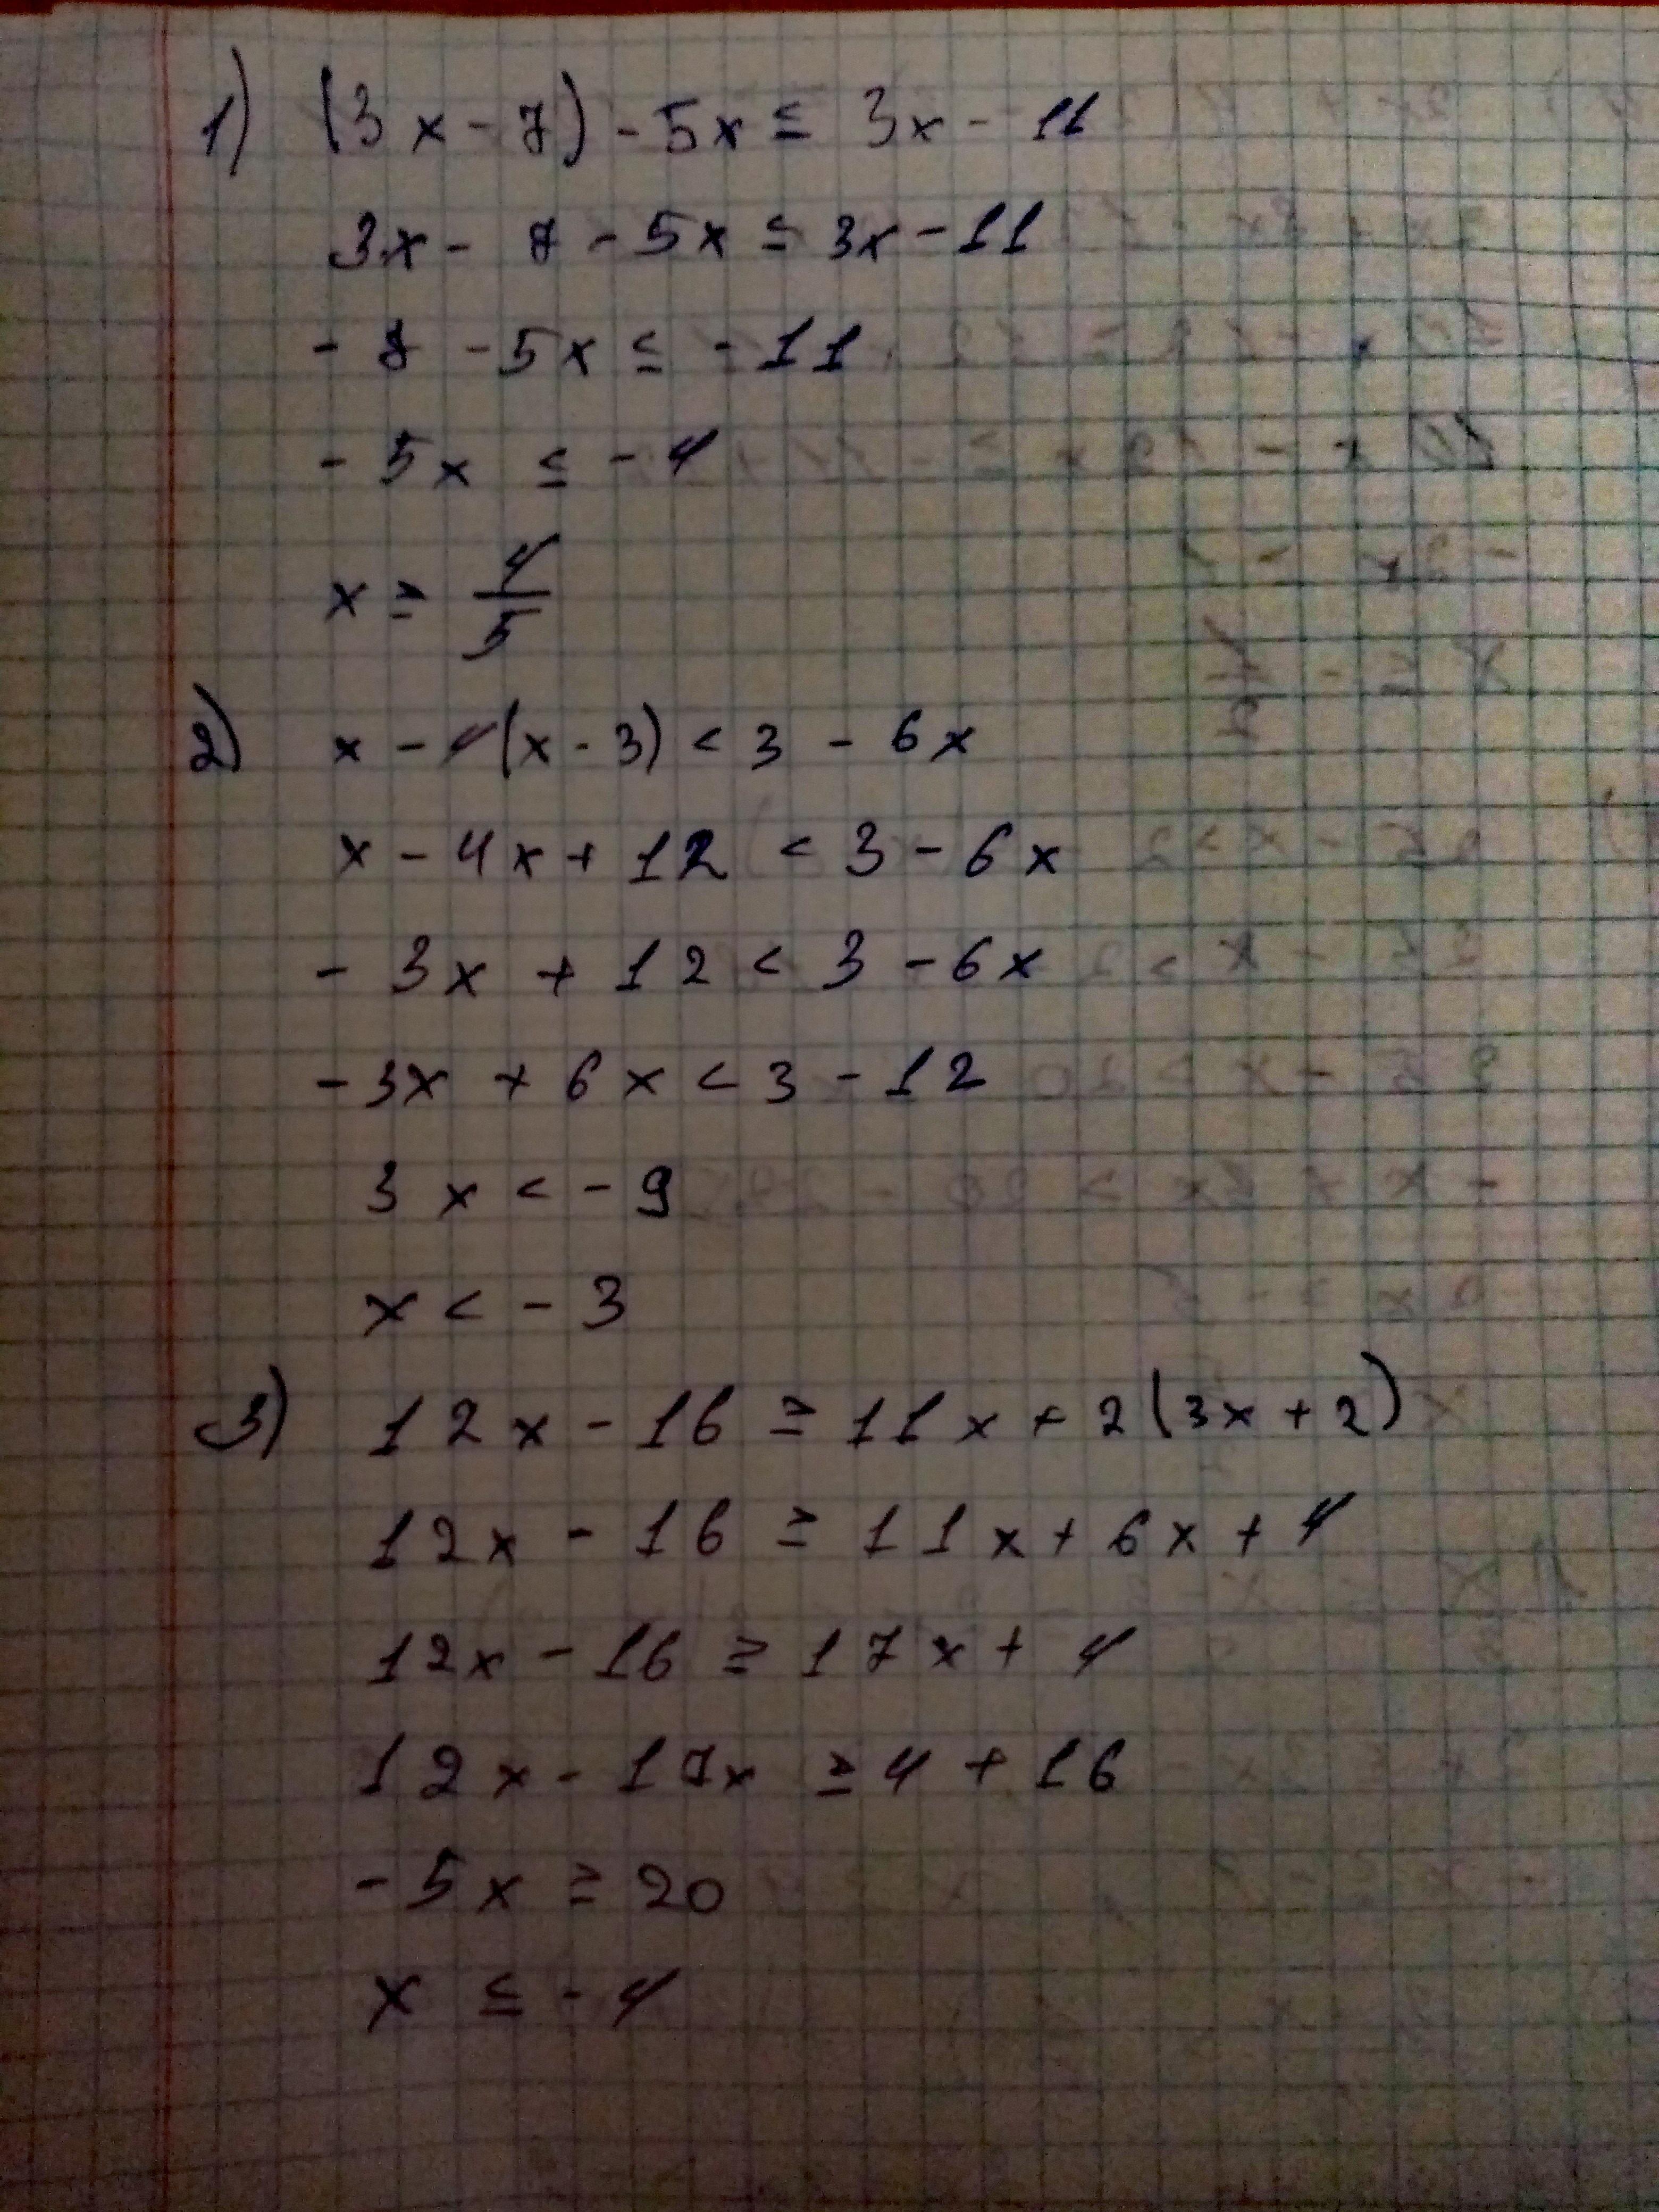 1) (3x - 7) - 5x ≤ 3x - 11
3x - 7 - 5x ≤ 3x - 11
- 7 - 5x ≤ - 11
- 5x ≤ - 4
x ≥ 4/5
2) x - 4(x - 3) < 3 - 6x
x - 4x + 12 < 3 - 6x
- 3x + 12 < 3 - 6x
- 3x + 6x < 3 - 12
3x < - 9
x < - 3
3) 12x - 16 ≥ 11x + 2(3x + 2)
12x - 16 ≥ 11x + 6x + 4
12x - 16 ≥ 17x + 4
12x - 17x ≥ 4 + 16
- 5x ≥ 20
x ≤ - 4